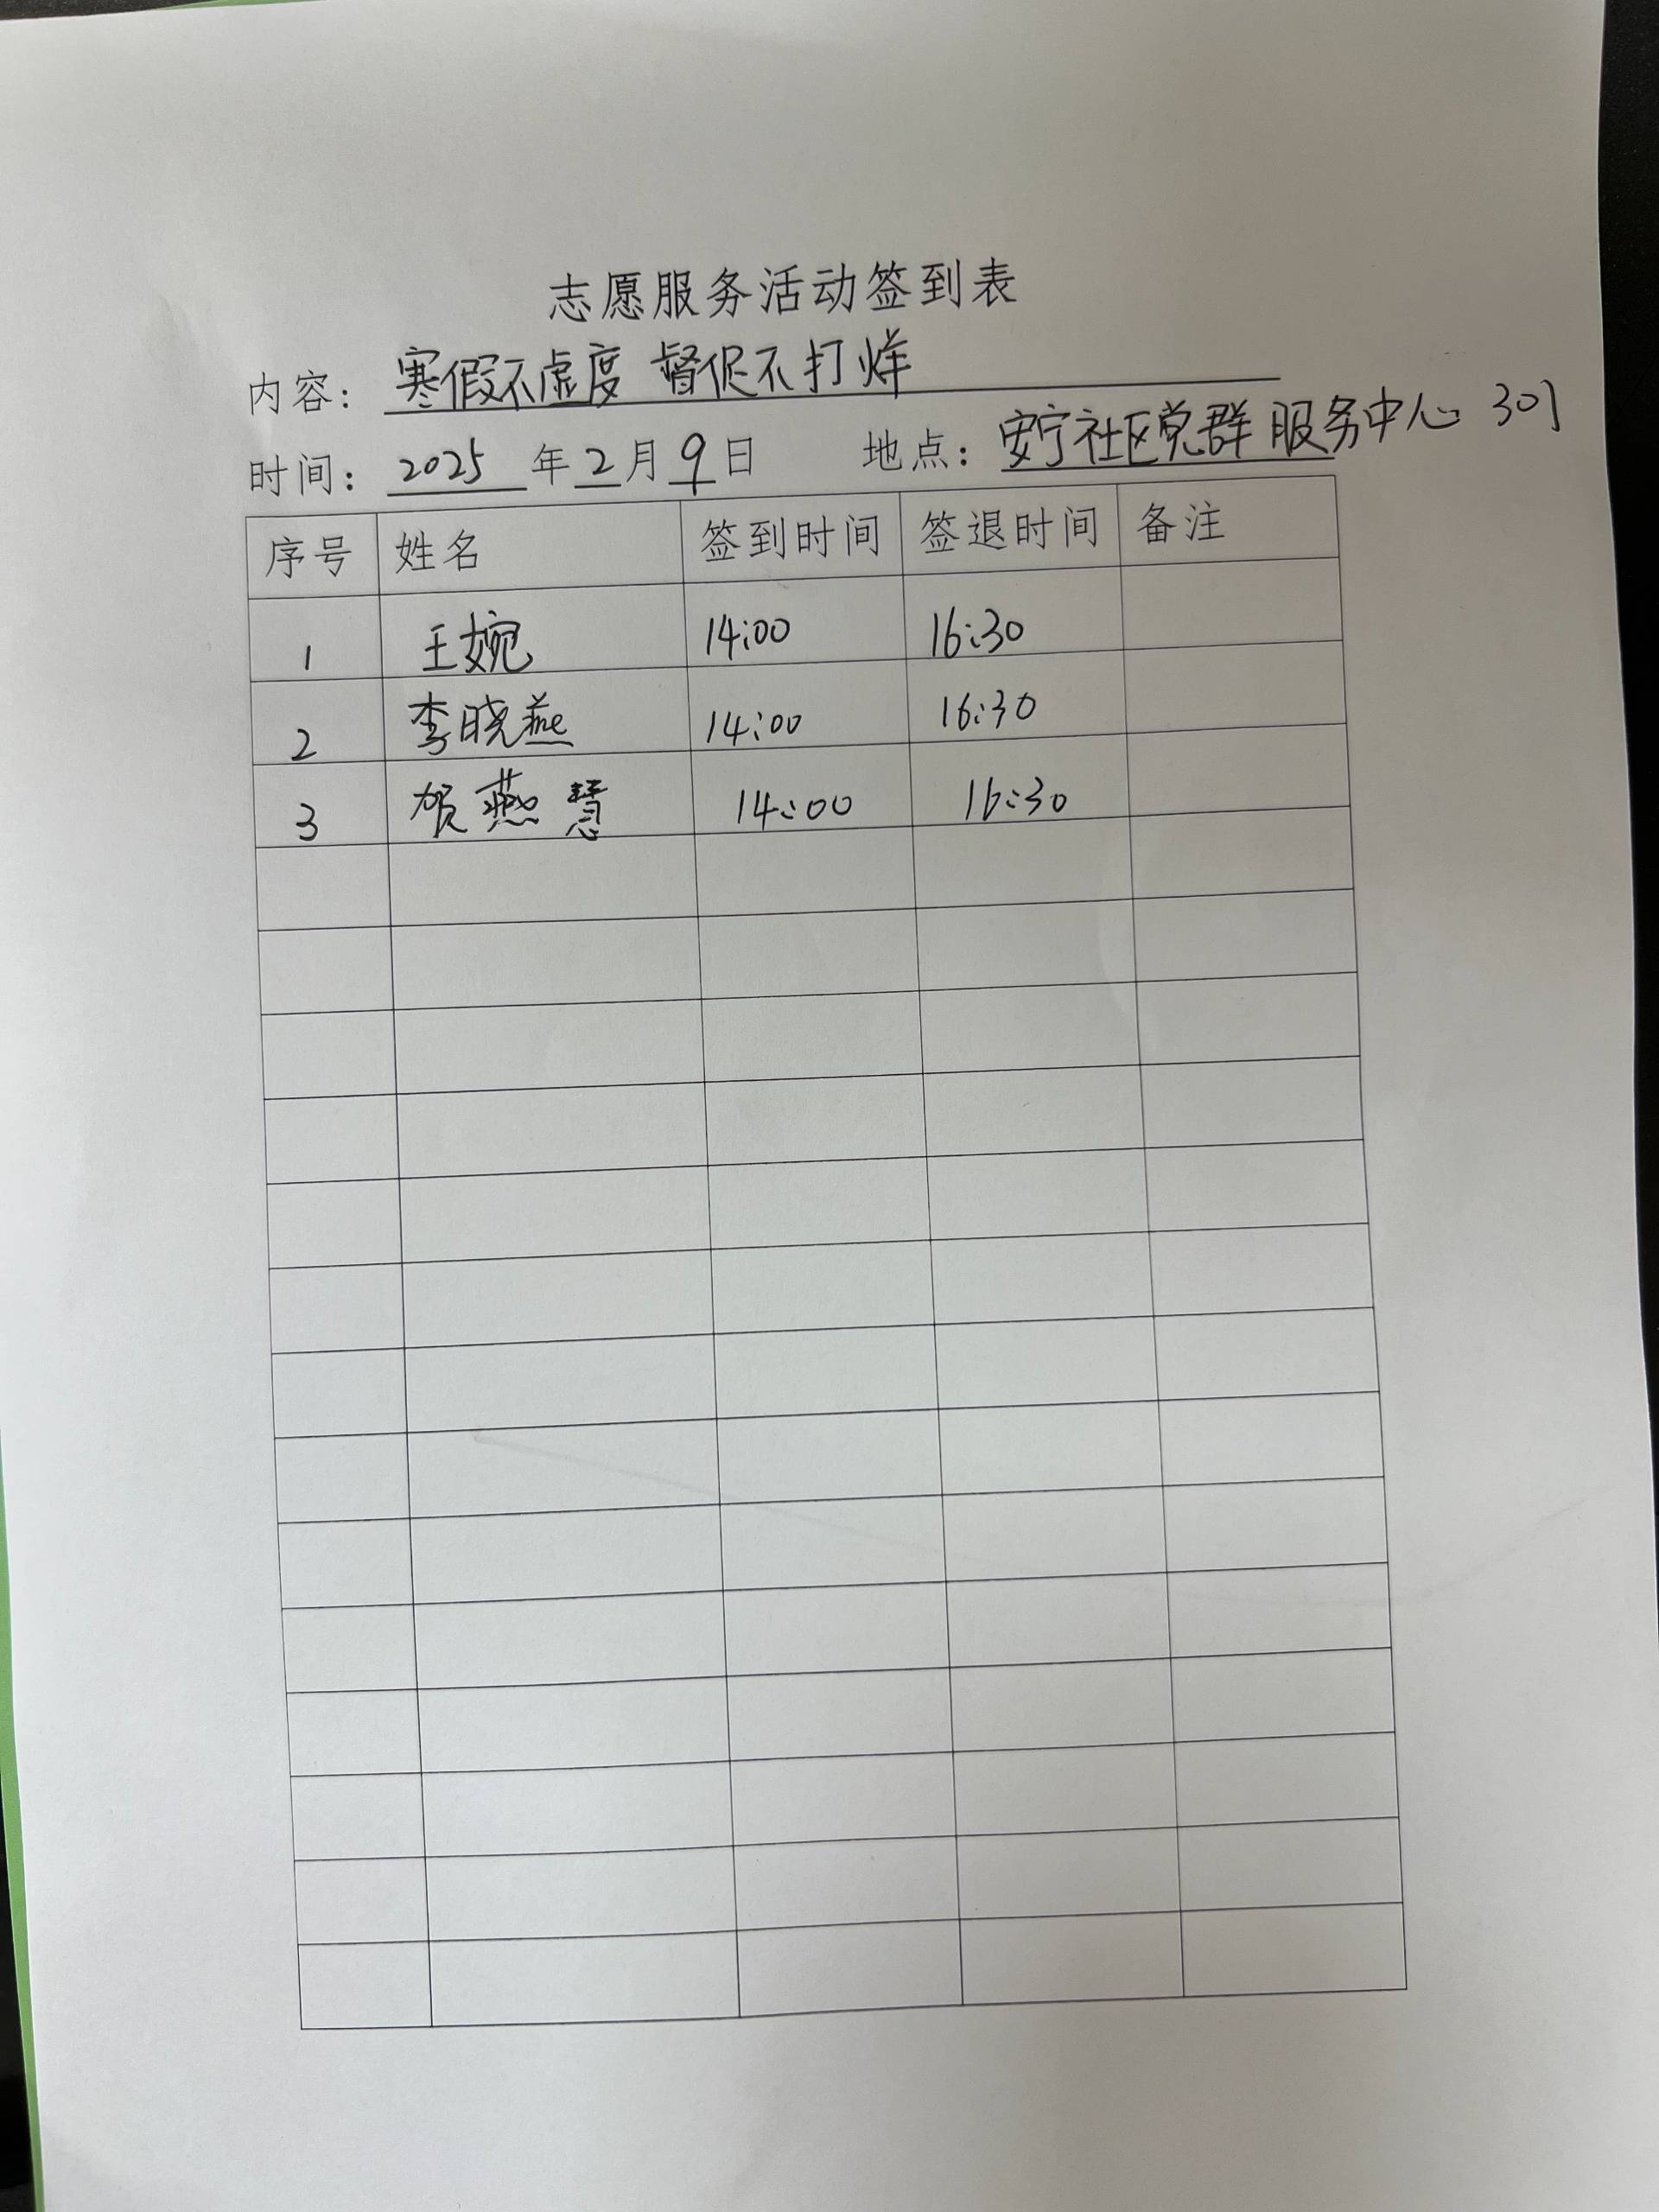 志愿服务活动签到表
内容：寒假不虚度 督促不打烊
时间：2025年2月9日 地点：安宁社区党群服务中心 301
序号 姓名 签到时间 签退时间 备注
1 王婉 14:00 16:30
2 李晓燕 14:00 16:30
3 贺燕慧 14:00 16:30